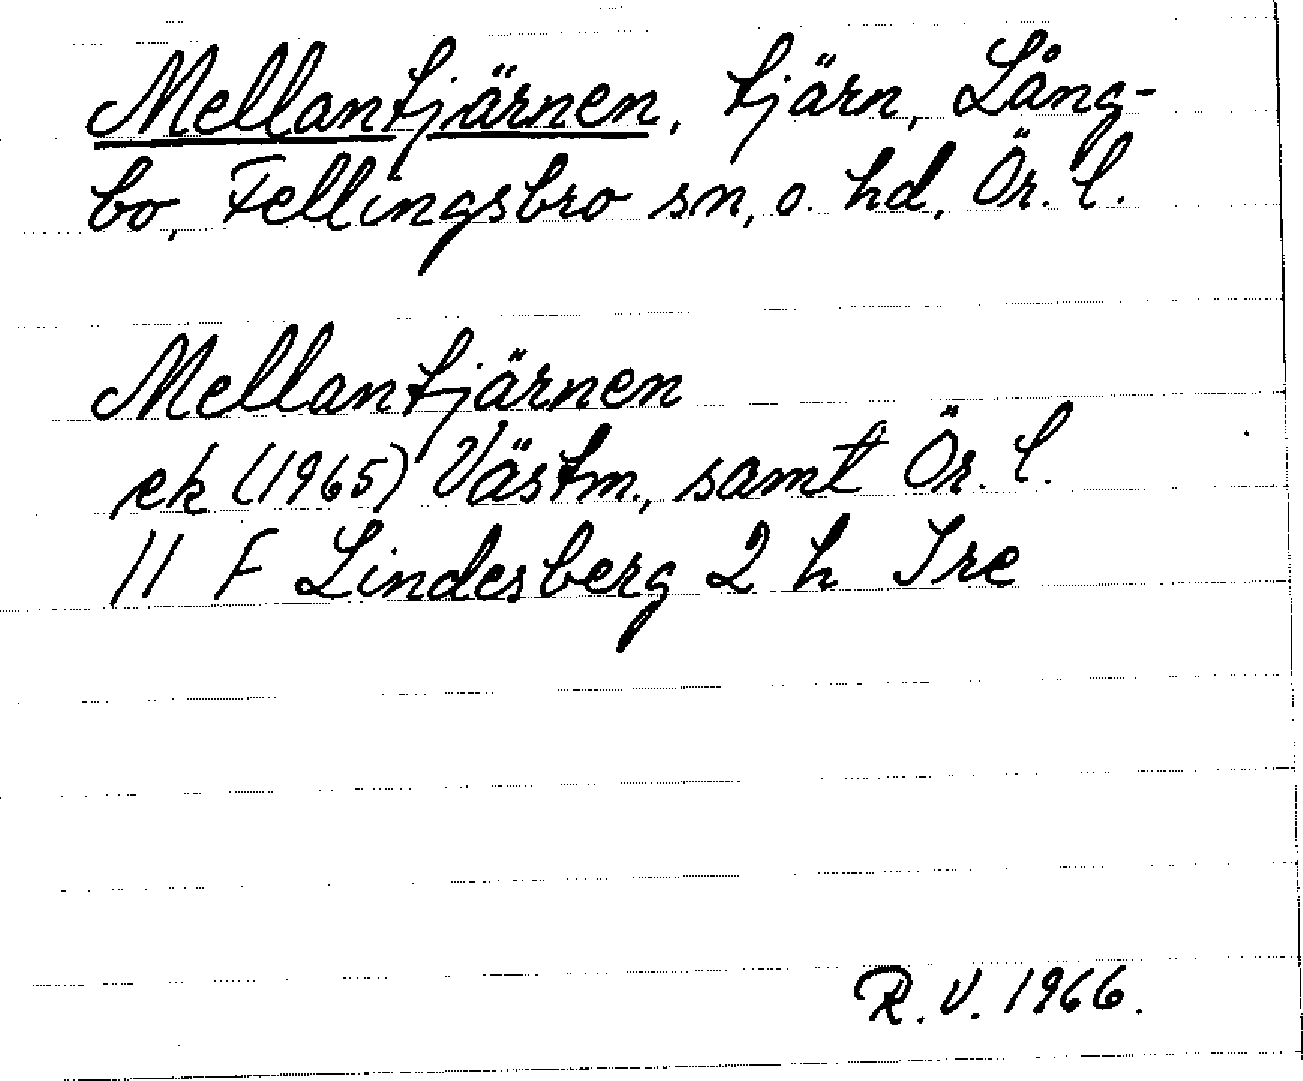 Mellantjärnen, tjärn, Lång-
bo, Fellingsbro sn, o. hd, Ör. l.
Mellantjärnen
ek (1965) Västm., samt Ör. l.
11 F Lindesberg 2 h Tre
R. V. 1966.